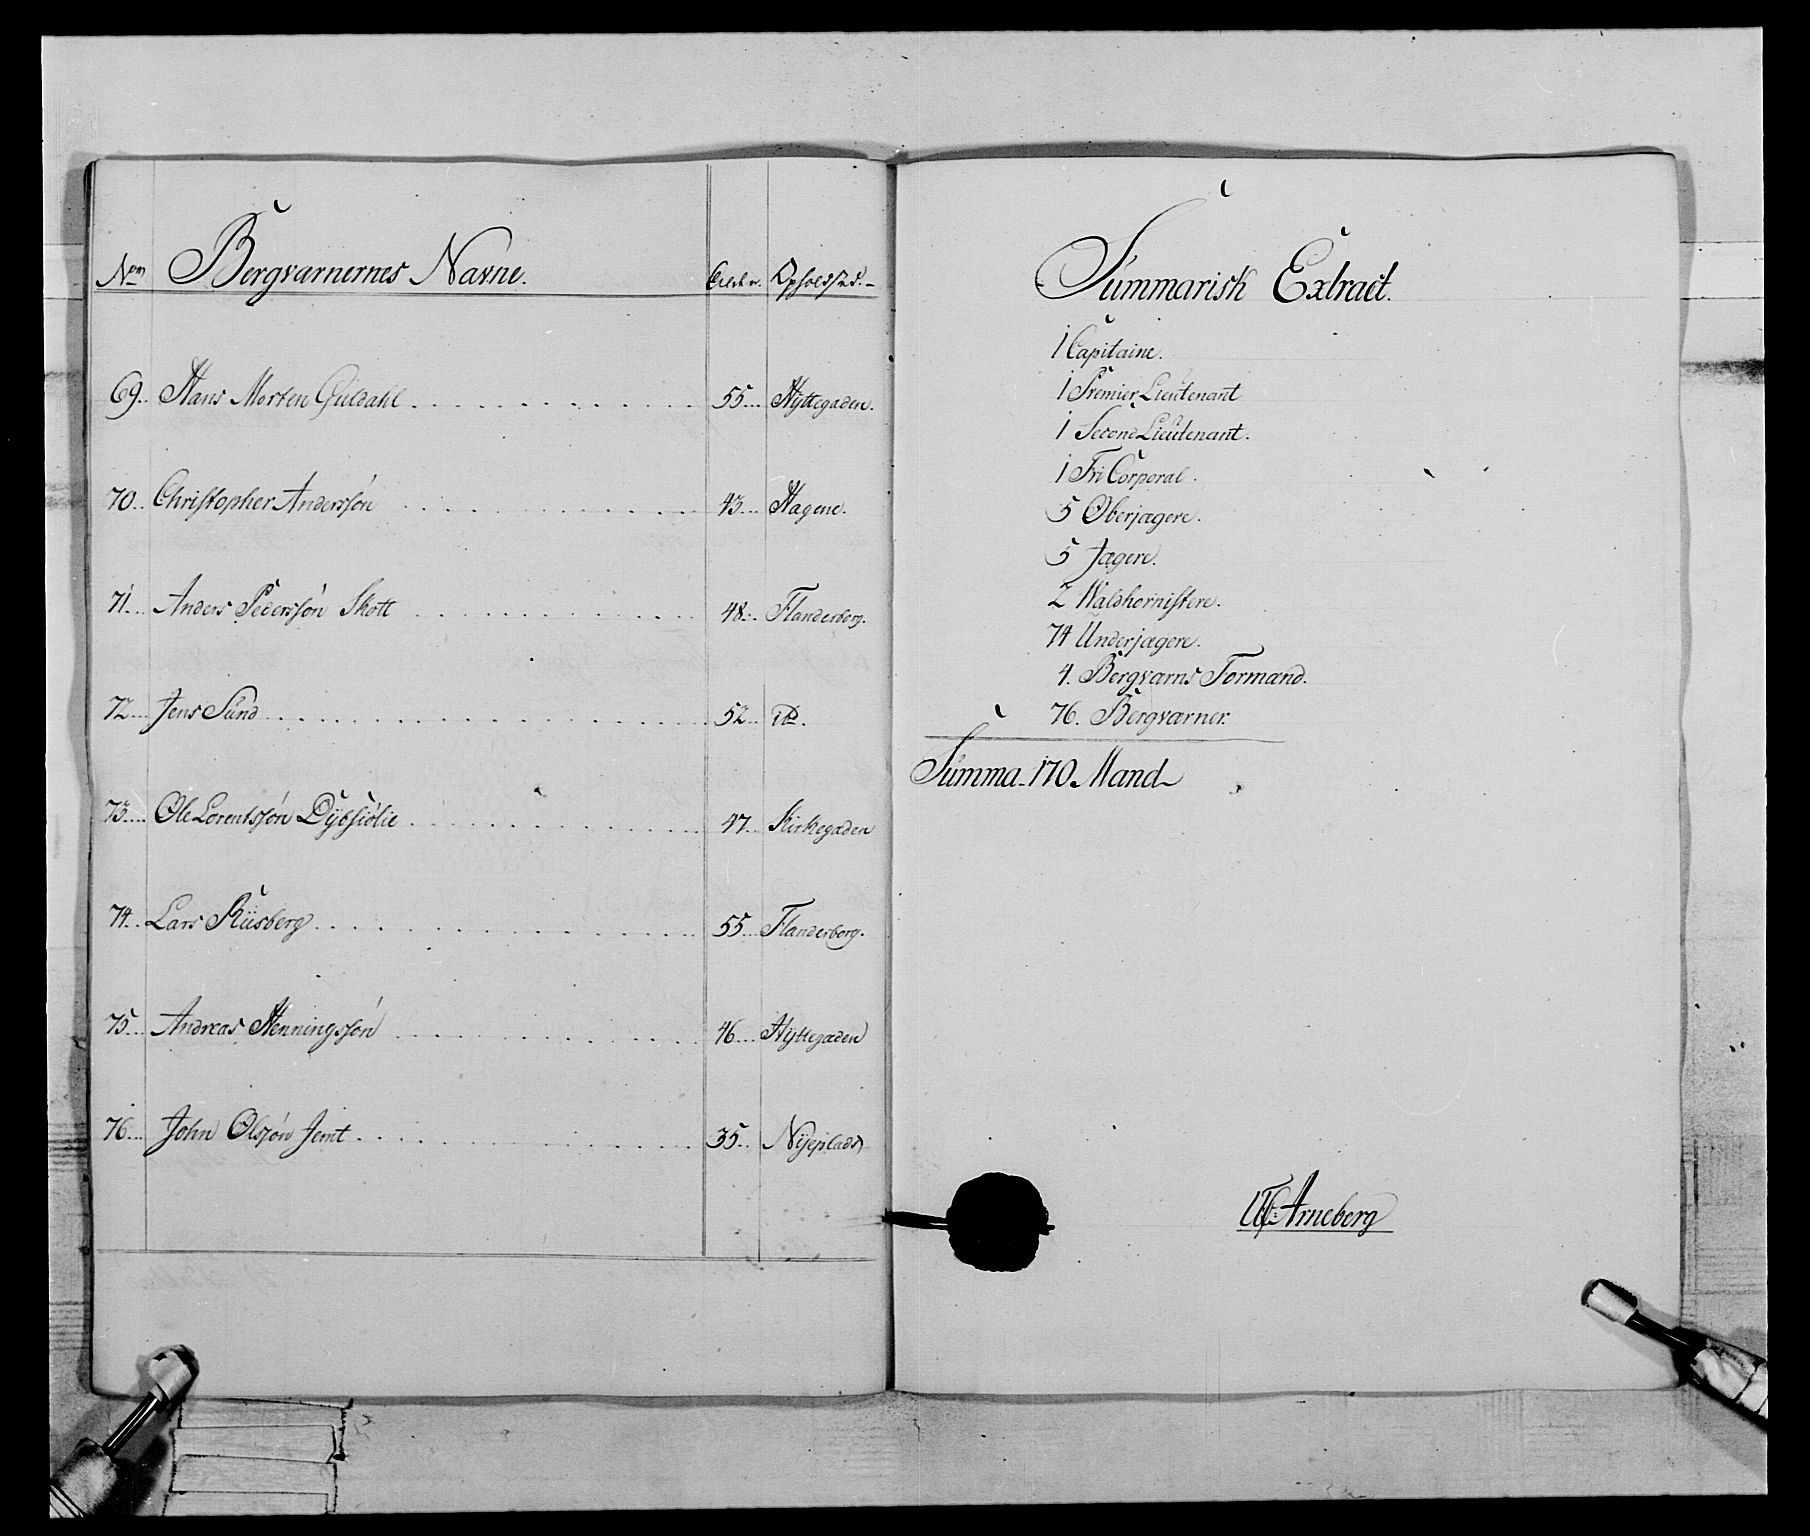 No Bergværnernes Navne. Alder. Opholdsted.
69. Hans Morten Guldahl 55 Hyttegaden.
70. Christopher Anderssøn 43 Hagene.
71. Anders Pederssøn Skott 48 Flanderborg.
72. Jens Sund 52 do.
73. Ole Lorentssøn Dybsiølie 47 Kirkegaden
74. Lars Riisberg 55 Flanderborg.
75. Andreas Henningssøn 46 Hyttegaden
76. John Olssøn Jemt 35 Nyeplads
Summarisk Extract.
1 Capitaine.
1 Premier Lieutenant
1 Second Lieutenant.
1 Fri Corporal.
5 Oberjægere.
5 Jægere.
2 Waldhornistere.
74 Underjægere.
4. Bergværns Formænd.
76. Bergværner.
Summa 170 Mand
Arneberg